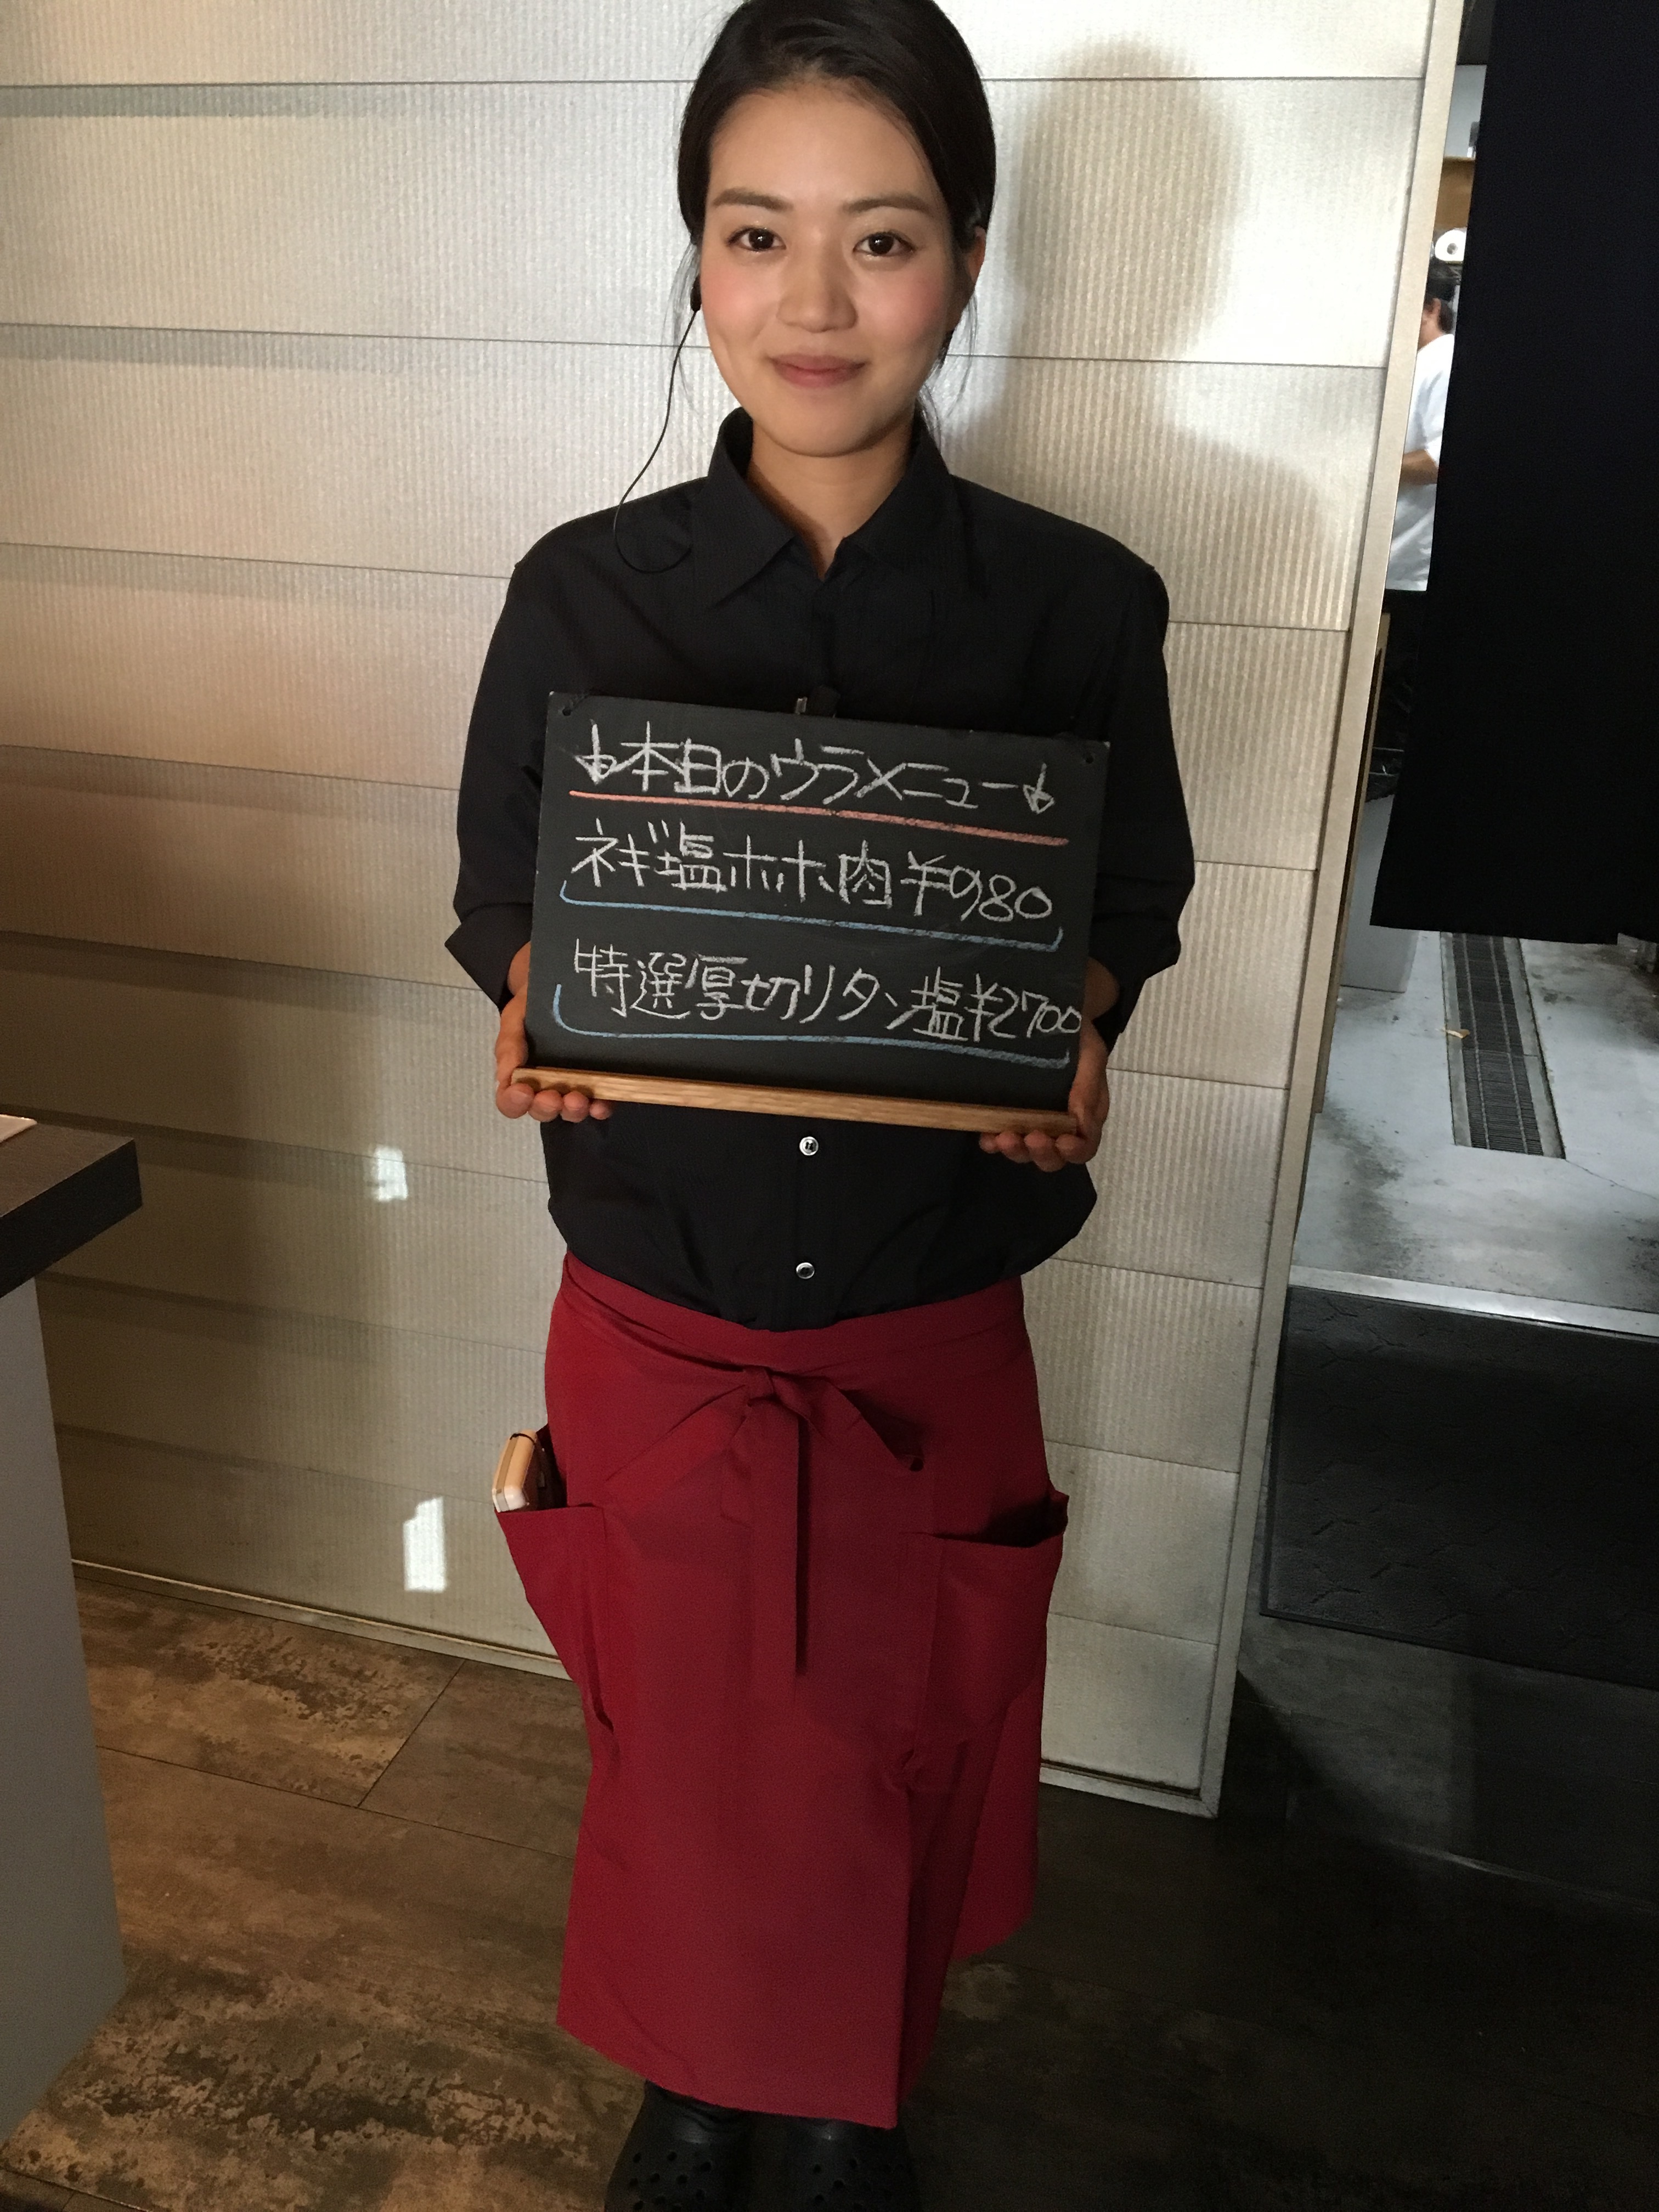 ↓本日のウラメニュー↓
ネギ塩ホホ肉¥980
特選厚切りタン塩¥2700